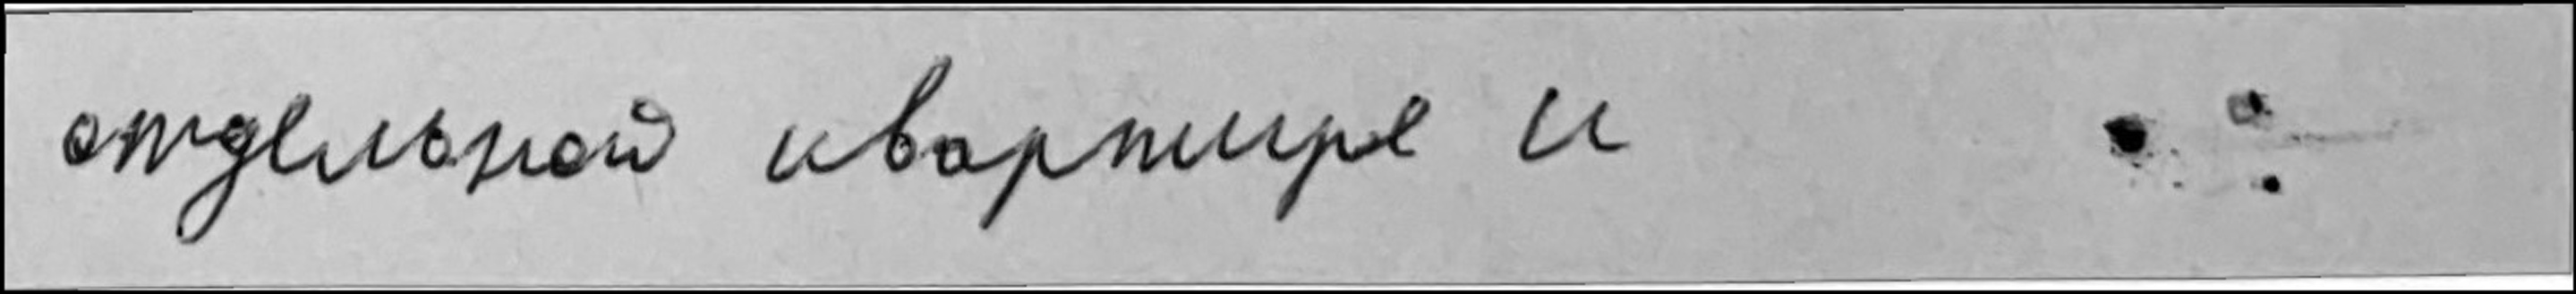 отдельной квартире и